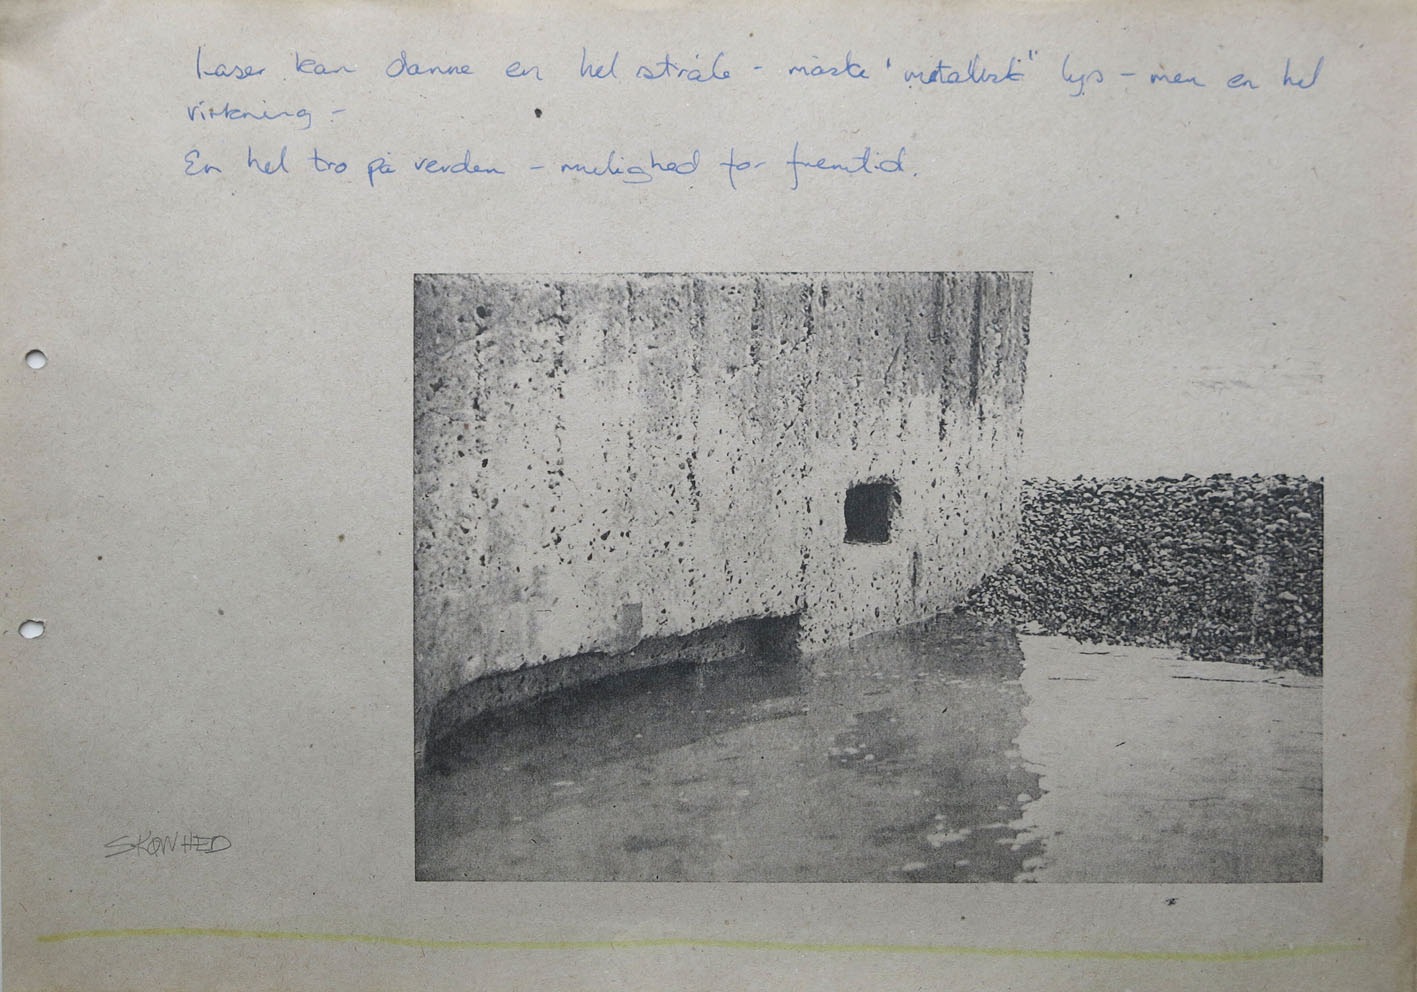 Laser kan danne en hel stråle - måske "metallisk" lys - men en hel
virkning -
En hel tro på verden - mulighed for fremtid.
SKØNHED